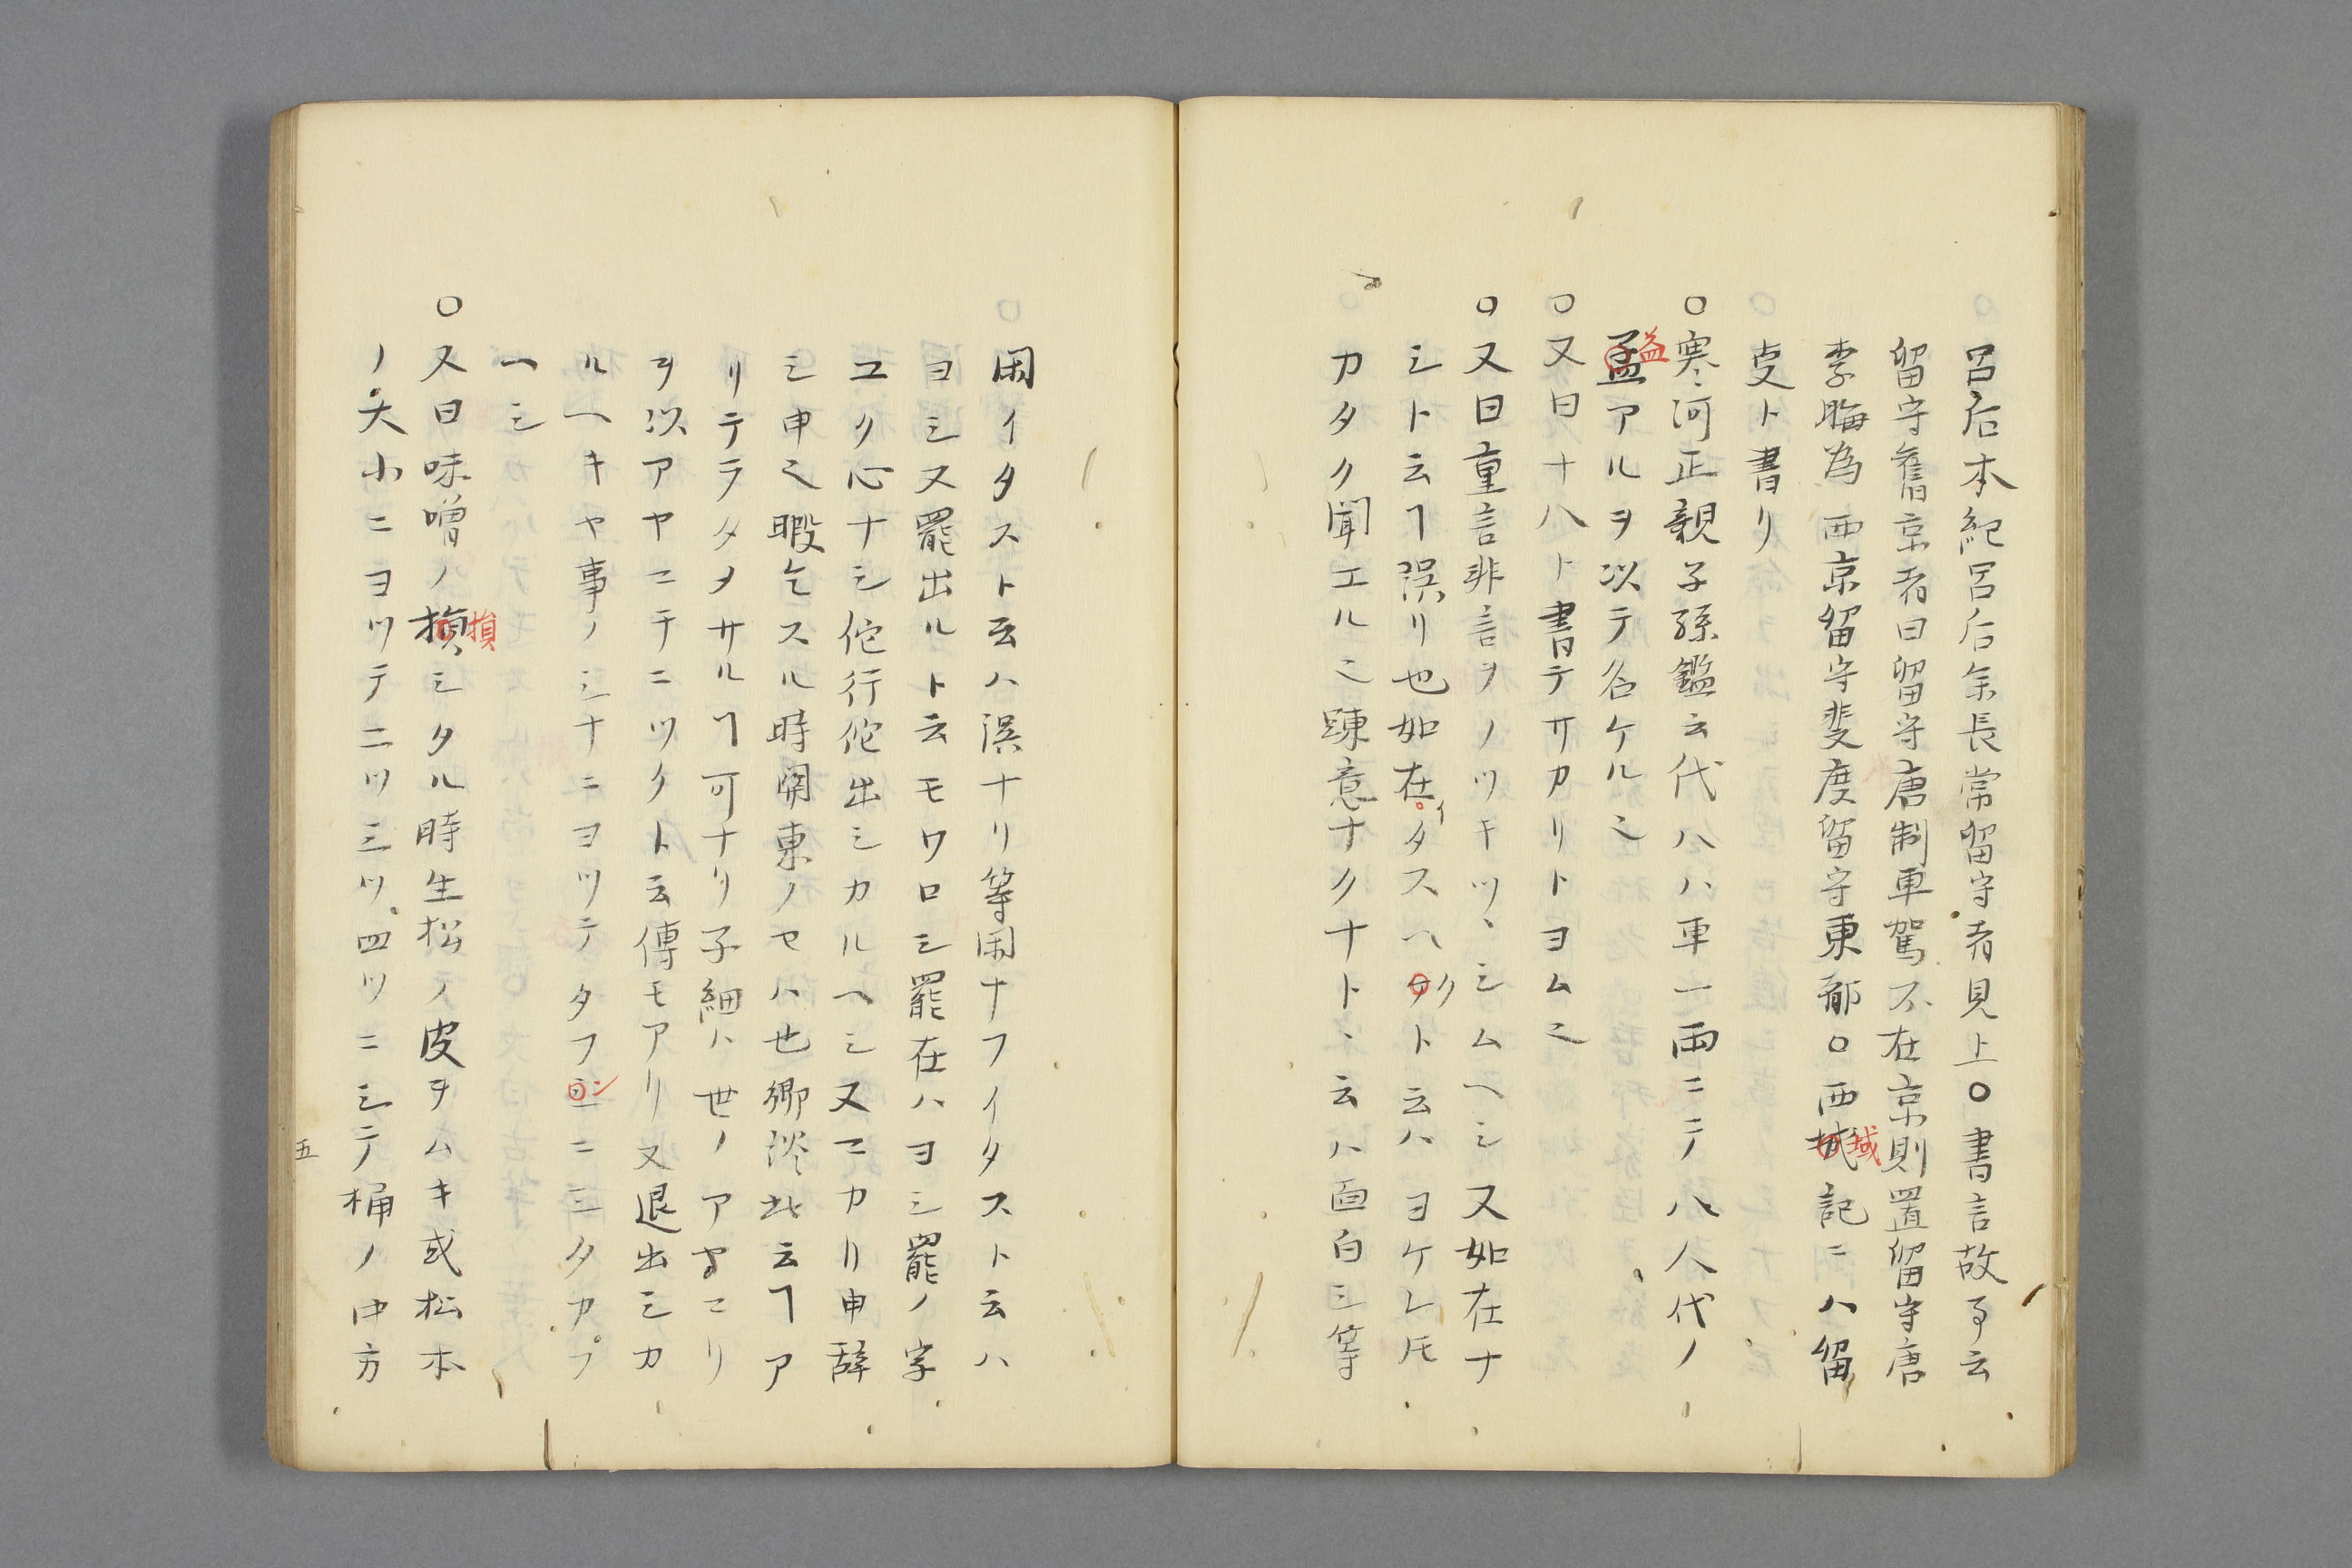 呂后本紀呂后年長常留守者見上○書言故事云
留守舊京者曰留守唐制車駕不在京則置留守唐
李晦為西京留守斐度留守東都○西城記ニハ留
域
支ト書リ
○寒河正親子孫鑑云代ハハ車一両ニテ八人代ノ
孟アルヲ以テ名ケル也
益
○又曰十八ト書テサカリトヨム也
○又曰重言非言ヲノツキツヽシムヘシ又如在ナ
シト云ヿ誤リ也如在イタスヘカト云ハヨケレ𪜈
ク
カタク聞エル也踈意ナクナトヽ云ハ面白シ等
閑イタスト云ハ誤ナリ等閑ナフイタスト云ハ
ヨシ又罷出ルト云モワロシ罷在ハヨシ罷ノ字
ユク心ナシ佗行佗出シカルヘシ又マカリ申辞
シ申也暇乞スル時関東ノセハ也郷談此云ヿア
リテラタメサルヿ可ナリ子細ハ世ノアヤマリ
ヲ以アヤマチニツクト云傳モアリ又退出シカ
ルヘキヤ事ノシナニヨツテタフニニミタカフ
ン
ヘシ
○又曰味噌ノ損シタル時生松ノ皮ヲムキ或松木
損
ノ大小ニヨツテ二ツ三ツ四ツニシテ桶ノ中方
五